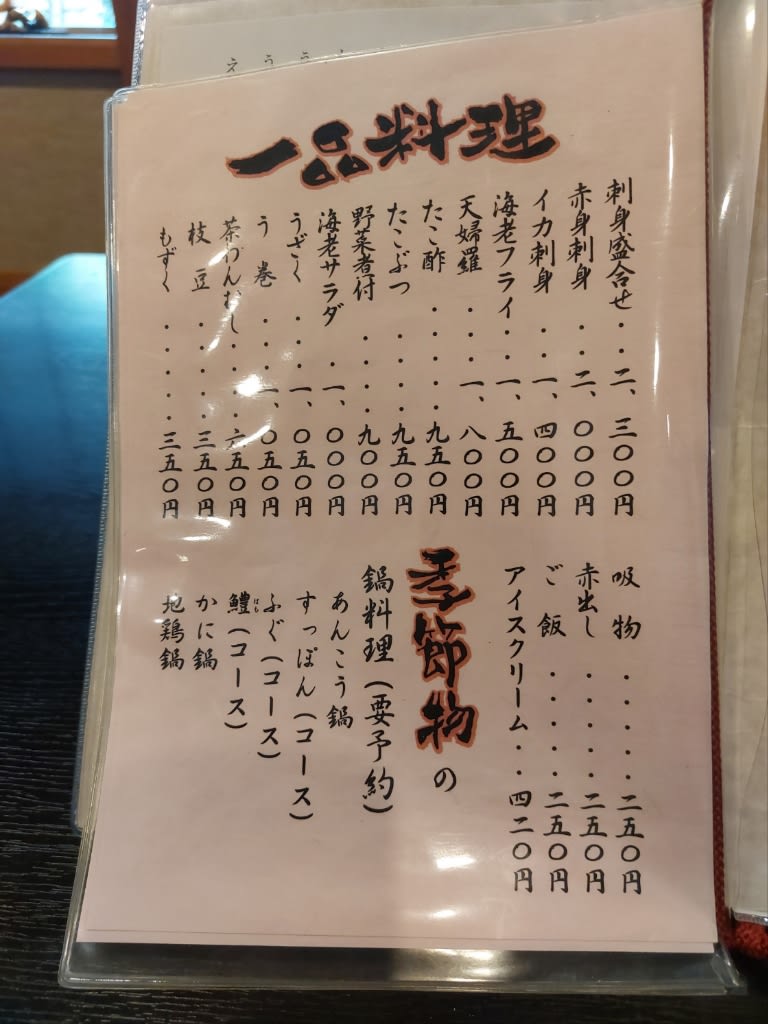 一品料理
刺身盛合せ・・二、三〇〇円
赤身刺身・・二、〇〇〇円
イカ刺身・・一、四〇〇円
海老フライ・・一、五〇〇円
天婦羅・・・一、八〇〇円
たこ酢・・・・・九五〇円
たこぶつ・・・・九五〇円
野菜煮付・・・・九〇〇円
海老サラダ・一、〇〇〇円
うざく・・・一、〇五〇円
う巻・・・・一、〇五〇円
茶わんむし・・・・六五〇円
枝豆・・・・・三五〇円
もずく・・・・・三五〇円
吸物・・・・・二五〇円
赤出し・・・・・二五〇円
ご飯・・・・・二五〇円
アイスクリーム・・四二〇円
季節物の
鍋料理(要予約)
あんこう鍋
すっぽん(コース)
ふぐ(コース)
鱧(コース)
はも
かに鍋
地鶏鍋